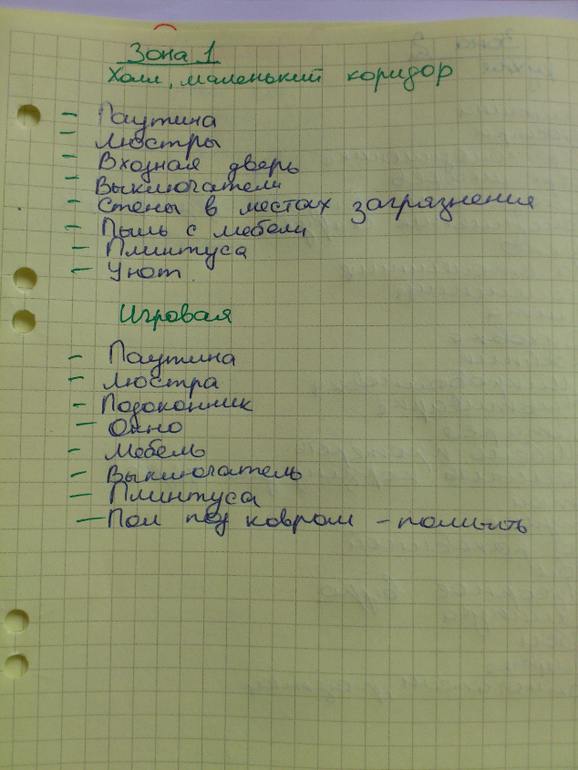 Зона 1
Холл, маленький коридор
- Паутина
- Люстры
- Входная дверь
- Выключатели
- Стены в местах загрязнения
- Пыль с мебели
- Плинтуса
- Унот.
Игровая
- Паутина
- Люстра
- Подоконник
- Окно
- Мебель
- Выключатель
- Плинтуса
- Пол под ковром - помыть